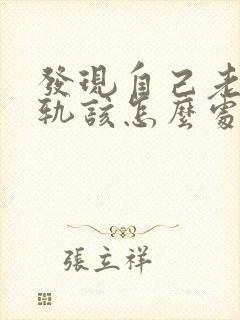 發現自己老
軌該怎麼處
張立祥